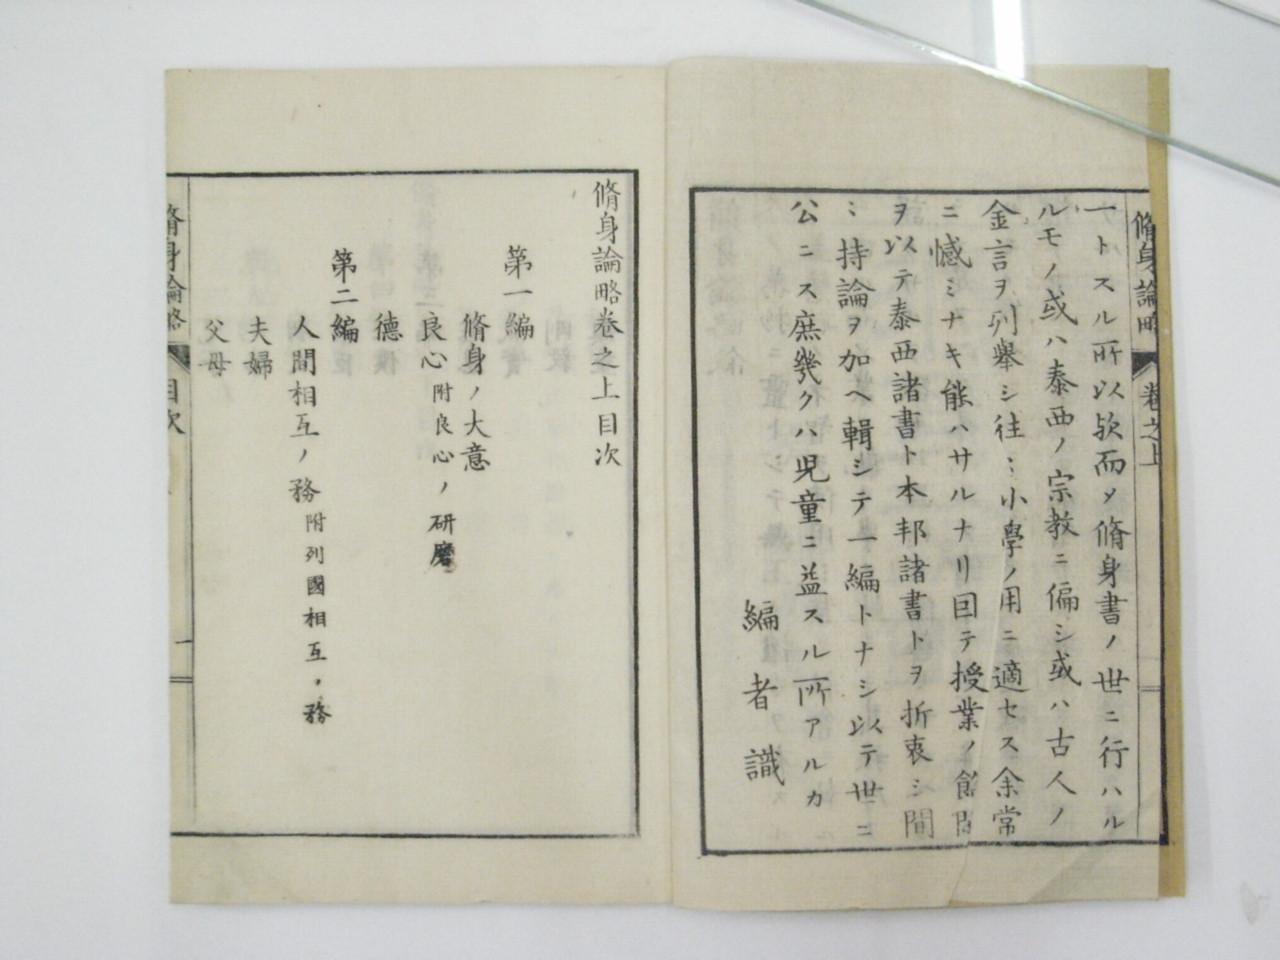 脩身論略
卷之上
一トスル所以欤而〆脩身書ノ世ニ行ハル
ルモノ或ハ泰西ノ宗教ニ偏シ或ハ古人ノ
金言ヲ列舉シ往〻小學ノ用ニ適セス余常
ニ憾ミナキ能ハサルナリ回テ授業ノ餘間
ヲ以テ泰西諸書ト本邦諸書トヲ折衷シ間
〻持論ヲ加ヘ輯シテ一編トナシ以テ世ニ
公ニス庶幾クハ児童ニ益スル所アルカ
編者識
脩身論略卷之上目次
第一編
脩身ノ大意
良心附良心ノ研磨
德
第二編
人間相互ノ務附列國相互ノ務
夫婦
父母
脩身論略
目次
一